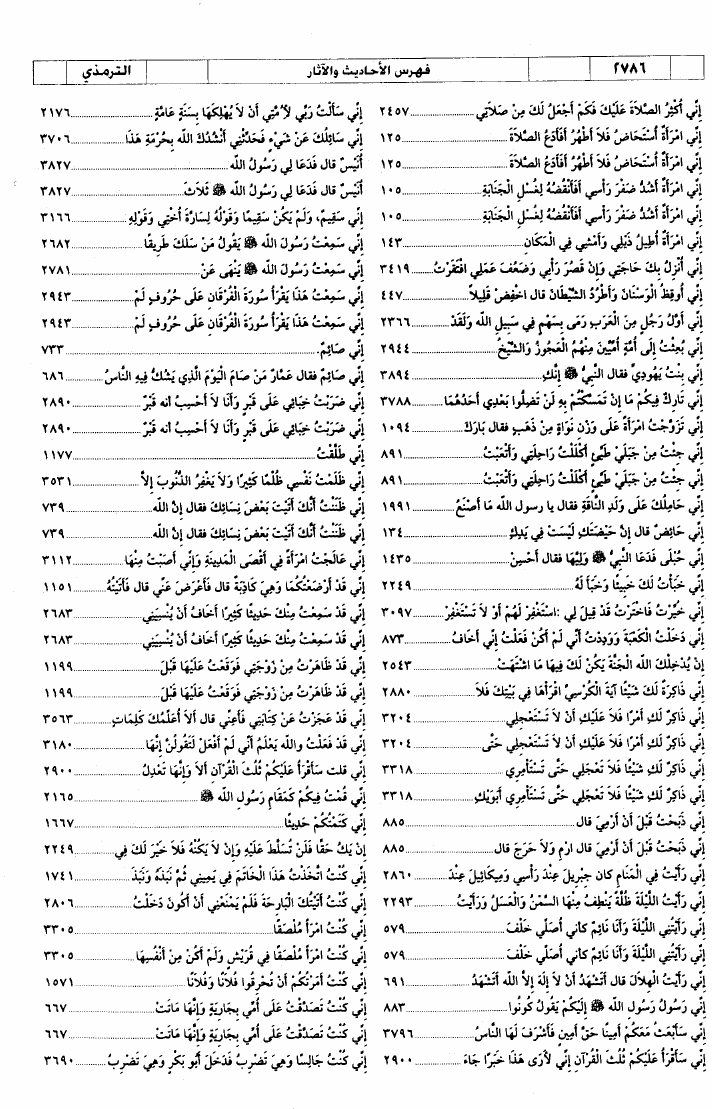 ٢٧٨٦ فهرس الأحاديث والآثار الترمذي
إِنِّي أُكْثِرُ الصَّلَاةَ عَلَيْكَ فَكَمْ أَجْعَلُ لَكَ مِنْ صَلَاتِي ٢٤٥٧
إِنِّي امْرَأَةٌ أُسْتَحَاضُ فَلَا أَطْهُرُ أَفَأَدَعُ الصَّلَاةَ ١٢٥
إِنِّي امْرَأَةٌ أُسْتَحَاضُ فَلَا أَطْهُرُ أَفَأَدَعُ الصَّلَاةَ ١٢٥
إِنِّي امْرَأَةٌ أَشُدُّ ضَفْرَ رَأْسِي أَفَأَنْقُضُهُ لِغُسْلِ الْجَنَابَةِ ١٠٥
إِنِّي امْرَأَةٌ أَشُدُّ ضَفْرَ رَأْسِي أَفَأَنْقُضُهُ لِغُسْلِ الْجَنَابَةِ ١٠٥
إِنِّي امْرَأَةٌ أُطِيلُ ذَيْلِي وَأَمْشِي فِي الْمَكَانِ ١٤٣
إِنِّي أُنْزِلُ بِكَ حَاجَتِي وَإِنْ قَصُرَ رَأْيِي وَضَعُفَ عَمَلِي افْتَقَرْتُ ٣٤١٩
إِنِّي أُوقِظُ الْوَسْنَانَ وَأَطْرُدُ الشَّيْطَانَ قال اخْفِضْ قَلِيلاً ٤٤٧
إِنِّي أَوَّلُ رَجُلٍ مِنَ الْعَرَبِ رَمَى بِسَهْمٍ فِي سَبِيلِ اللَّهِ وَلَقَدْ ٢٣٦٦
إِنِّي بُعِثْتُ إِلَى أُمَّةٍ أُمِّيِّينَ مِنْهُمُ الْعَجُوزُ وَالشَّيْخُ ٢٩٤٤
إِنِّي بِنْتُ يَهُودِيٍّ فقال النَّبِيُّ ﷺ إِنَّكِ ٣٨٩٤
إِنِّي تَارِكٌ فِيكُمْ مَا إِنْ تَمَسَّكْتُمْ بِهِ لَنْ تَضِلُّوا بَعْدِي أَحَدُهُمَا ٣٧٨٨
إِنِّي تَزَوَّجْتُ امْرَأَةً عَلَى وَزْنِ نَوَاةٍ مِنْ ذَهَبٍ فقال بَارَكَ ١٠٩٤
إِنِّي جِئْتُ مِنْ جَبَلَيْ طَيِّئٍ أَكْلَلْتُ رَاحِلَتِي وَأَتْعَبْتُ ٨٩١
إِنِّي جِئْتُ مِنْ جَبَلَيْ طَيِّئٍ أَكْلَلْتُ رَاحِلَتِي وَأَتْعَبْتُ ٨٩١
إِنِّي حَامِلُكَ عَلَى وَلَدِ النَّاقَةِ فقال يا رسول اللَّهِ مَا أَصْنَعُ ١٩٩١
إِنِّي حَائِضٌ قال إِنَّ حَيْضَتَكِ لَيْسَتْ فِي يَدِكِ ١٣٤
إِنِّي حُبْلَى فَدَعَا النَّبِيُّ ﷺ وَلِيَّهَا فقال أَحْسِنْ ١٤٣٥
إِنِّي خَبَأْتُ لَكَ خَبِيئًا وَخَبَأَ لَهُ ٢٢٤٩
إِنِّي خُيِّرْتُ فَاخْتَرْتُ قَدْ قِيلَ لِي: اسْتَغْفِرْ لَهُمْ أَوْ لَا تَسْتَغْفِرْ ٣٠٩٧
إِنِّي دَخَلْتُ الْكَعْبَةَ وَوَدِدْتُ أَنِّي لَمْ أَكُنْ فَعَلْتُ إِنِّي أَخَافُ ٨٧٣
إِنْ يُدْخِلْكَ اللَّهُ الْجَنَّةَ يَكُنْ لَكَ فِيهَا مَا اشْتَهَتْ ٢٥٤٣
إِنِّي ذَاكِرَةٌ لَكَ شَيْئًا آيَةَ الْكُرْسِيِّ اقْرَأْهَا فِي بَيْتِكَ فَلَا ٢٨٨٠
إِنِّي ذَاكِرٌ لَكِ أَمْرًا فَلَا عَلَيْكِ أَنْ لَا تَسْتَعْجِلِي ٣٢٠٤
إِنِّي ذَاكِرٌ لَكِ أَمْرًا فَلَا عَلَيْكِ أَنْ لَا تَسْتَعْجِلِي حَتَّى ٣٢٠٤
إِنِّي ذَاكِرٌ لَكِ شَيْئًا فَلَا تَعْجَلِي حَتَّى تَسْتَأْمِرِي ٣٣١٨
إِنِّي ذَاكِرٌ لَكِ شَيْئًا فَلَا تَعْجَلِي حَتَّى تَسْتَأْمِرِي أَبَوَيْكِ ٣٣١٨
إِنِّي ذَبَحْتُ قَبْلَ أَنْ أَرْمِيَ قال ٨٨٥
إِنِّي ذَبَحْتُ قَبْلَ أَنْ أَرْمِيَ قال ارْمِ وَلَا حَرَجَ قال ٨٨٥
إِنِّي رَأَيْتُ فِي الْمَنَامِ كان جِبْرِيلَ عِنْدَ رَأْسِي وَمِيكَائِيلَ عِنْدَ ٢٨٦٠
إِنِّي رَأَيْتُ اللَّيْلَةَ ظُلَّةً يَنْطِفُ مِنْهَا السَّمْنُ وَالْعَسَلُ وَرَأَيْتُ ٢٢٩٣
إِنِّي رَأَيْتُنِي اللَّيْلَةَ وَأَنَا نَائِمٌ كاني أُصَلِّي خَلْفَ ٥٧٩
إِنِّي رَأَيْتُنِي اللَّيْلَةَ وَأَنَا نَائِمٌ كاني أُصَلِّي خَلْفَ ٥٧٩
إِنِّي رَأَيْتُ الْهِلَالَ قال أَتَشْهَدُ أَنْ لَا إِلَهَ إِلَّا اللَّهُ أَتَشْهَدُ ٦٩١
إِنِّي رَسُولُ رَسُولِ اللَّهِ ﷺ إِلَيْكُمْ يَقُولُ كُونُوا ٨٨٣
إِنِّي سَأَبْعَثُ مَعَكُمْ أَمِينًا حَقَّ أَمِينٍ فَأَشْرَفَ لَهَا النَّاسُ ٣٧٩٦
إِنِّي سَأَقْرَأُ عَلَيْكُمْ ثُلُثَ الْقُرْآنِ إِنِّي لَأُرَى هَذَا خَبَرًا جَاءَ ٢٩٠٠
إِنِّي سَأَلْتُ رَبِّي لِأُمَّتِي أَنْ لَا يُهْلِكَهَا بِسَنَةٍ عَامَّةٍ ٢١٧٦
إِنِّي سَائِلُكَ عَنْ شَيْءٍ فَحَدِّثْنِي أَنْشُدُكَ اللَّهَ بِحُرْمَةِ هَذَا ٣٧٠٦
أُنَيْسٌ قال فَدَعَا لِي رَسُولُ اللَّهِ ٣٨٢٧
أُنَيْسٌ قال فَدَعَا لِي رَسُولُ اللَّهِ ﷺ ثَلَاثَ ٣٨٢٧
إِنِّي سَقِيمٌ، وَلَمْ يَكُنْ سَقِيمًا وَقَوْلُهُ لِسَارَّةَ أُخْتِي وَقَوْلِهِ ٣١٦٦
إِنِّي سَمِعْتُ رَسُولَ اللَّهِ ﷺ يَقُولُ مَنْ سَلَكَ طَرِيقًا ٢٦٨٢
إِنِّي سَمِعْتُ رَسُولَ اللَّهِ ﷺ يَنْهَى عَنْ ٢٧٨١
إِنِّي سَمِعْتُ هَذَا يَقْرَأُ سُورَةَ الْفُرْقَانِ عَلَى حُرُوفٍ لَمْ ٢٩٤٣
إِنِّي سَمِعْتُ هَذَا يَقْرَأُ سُورَةَ الْفُرْقَانِ عَلَى حُرُوفٍ لَمْ ٢٩٤٣
إِنِّي صَائِمٌ ٧٣٣
إِنِّي صَائِمٌ فقال عَمَّارٌ مَنْ صَامَ الْيَوْمَ الَّذِي يَشُكُّ فِيهِ النَّاسُ ٦٨٦
إِنِّي ضَرَبْتُ خِبَائِي عَلَى قَبْرٍ وَأَنَا لَا أَحْسِبُ أنه قَبْرٌ ٢٨٩٠
إِنِّي ضَرَبْتُ خِبَائِي عَلَى قَبْرٍ وَأَنَا لَا أَحْسِبُ أنه قَبْرٌ ٢٨٩٠
إِنِّي طَلَّقْتُ ١١٧٧
إِنِّي ظَلَمْتُ نَفْسِي ظُلْمًا كَثِيرًا وَلَا يَغْفِرُ الذُّنُوبَ إِلَّا ٣٥٣١
إِنِّي ظَنَنْتُ أَنَّكَ أَتَيْتَ بَعْضَ نِسَائِكَ فقال إِنَّ اللَّهَ ٧٣٩
إِنِّي ظَنَنْتُ أَنَّكَ أَتَيْتَ بَعْضَ نِسَائِكَ فقال إِنَّ اللَّهَ ٧٣٩
إِنِّي عَالَجْتُ امْرَأَةً فِي أَقْصَى الْمَدِينَةِ وَإِنِّي أَصَبْتُ مِنْهَا ٣١١٢
إِنِّي قَدْ أَرْضَعْتُكُمَا وَهِيَ كَاذِبَةٌ قال فَأَعْرَضَ عَنِّي قال فَأَتَيْتُهُ ١١٥١
إِنِّي قَدْ سَمِعْتُ مِنْكَ حَدِيثًا كَثِيرًا أَخَافُ أَنْ يُنْسِيَنِي ٢٦٨٣
إِنِّي قَدْ سَمِعْتُ مِنْكَ حَدِيثًا كَثِيرًا أَخَافُ أَنْ يُنْسِيَنِي ٢٦٨٣
إِنِّي قَدْ ظَاهَرْتُ مِنْ زَوْجَتِي فَوَقَعْتُ عَلَيْهَا قَبْلَ ١١٩٩
إِنِّي قَدْ ظَاهَرْتُ مِنْ زَوْجَتِي فَوَقَعْتُ عَلَيْهَا قَبْلَ ١١٩٩
إِنِّي قَدْ عَجَزْتُ عَنْ كِتَابَتِي فَأَعِنِّي قال أَلَا أُعَلِّمُكَ كَلِمَاتٍ ٣٥٦٣
إِنِّي قَدْ فَعَلْتُ وَاللَّهُ يَعْلَمُ أَنِّي لَمْ أَفْعَلْ لَتَقُولُنَّ إِنَّهَا ٣١٨٠
إِنِّي قلت سَأَقْرَأُ عَلَيْكُمْ ثُلُثَ الْقُرْآنِ أَلَا وَإِنَّهَا تَعْدِلُ ٢٩٠٠
إِنِّي قُمْتُ فِيكُمْ كَمَقَامِ رَسُولِ اللَّهِ ﷺ ٢١٦٥
إِنِّي كَتَمْتُكُمْ حَدِيثًا ١٦٦٧
إِنْ يَكُ حَقًّا فَلَنْ تُسَلَّطَ عَلَيْهِ وَإِنْ لَا يَكُنْهُ فَلَا خَيْرَ لَكَ فِي ٢٢٤٩
إِنِّي كُنْتُ اتَّخَذْتُ هَذَا الْخَاتَمَ فِي يَمِينِي ثُمَّ نَبَذَهُ وَنَبَذَ ١٧٤١
إِنِّي كُنْتُ أَتَيْتُكَ الْبَارِحَةَ فَلَمْ يَمْنَعْنِي أَنْ أَكُونَ دَخَلْتُ ٢٨٠٦
إِنِّي كُنْتُ امْرَأً مُلْصَقًا ٣٣٠٥
إِنِّي كُنْتُ امْرَأً مُلْصَقًا فِي قُرَيْشٍ وَلَمْ أَكُنْ مِنْ أَنْفُسِهَا ٣٣٠٥
إِنِّي كُنْتُ أَمَرْتُكُمْ أَنْ تُحْرِقُوا فُلَانًا وَفُلَانًا ١٥٧١
إِنِّي كُنْتُ تَصَدَّقْتُ عَلَى أُمِّي بِجَارِيَةٍ وَإِنَّهَا مَاتَتْ ٦٦٧
إِنِّي كُنْتُ تَصَدَّقْتُ عَلَى أُمِّي بِجَارِيَةٍ وَإِنَّهَا مَاتَتْ ٦٦٧
إِنِّي كُنْتُ جَالِسًا وَهِيَ تَضْرِبُ فَدَخَلَ أَبُو بَكْرٍ وَهِيَ تَضْرِبُ ٣٦٩٠